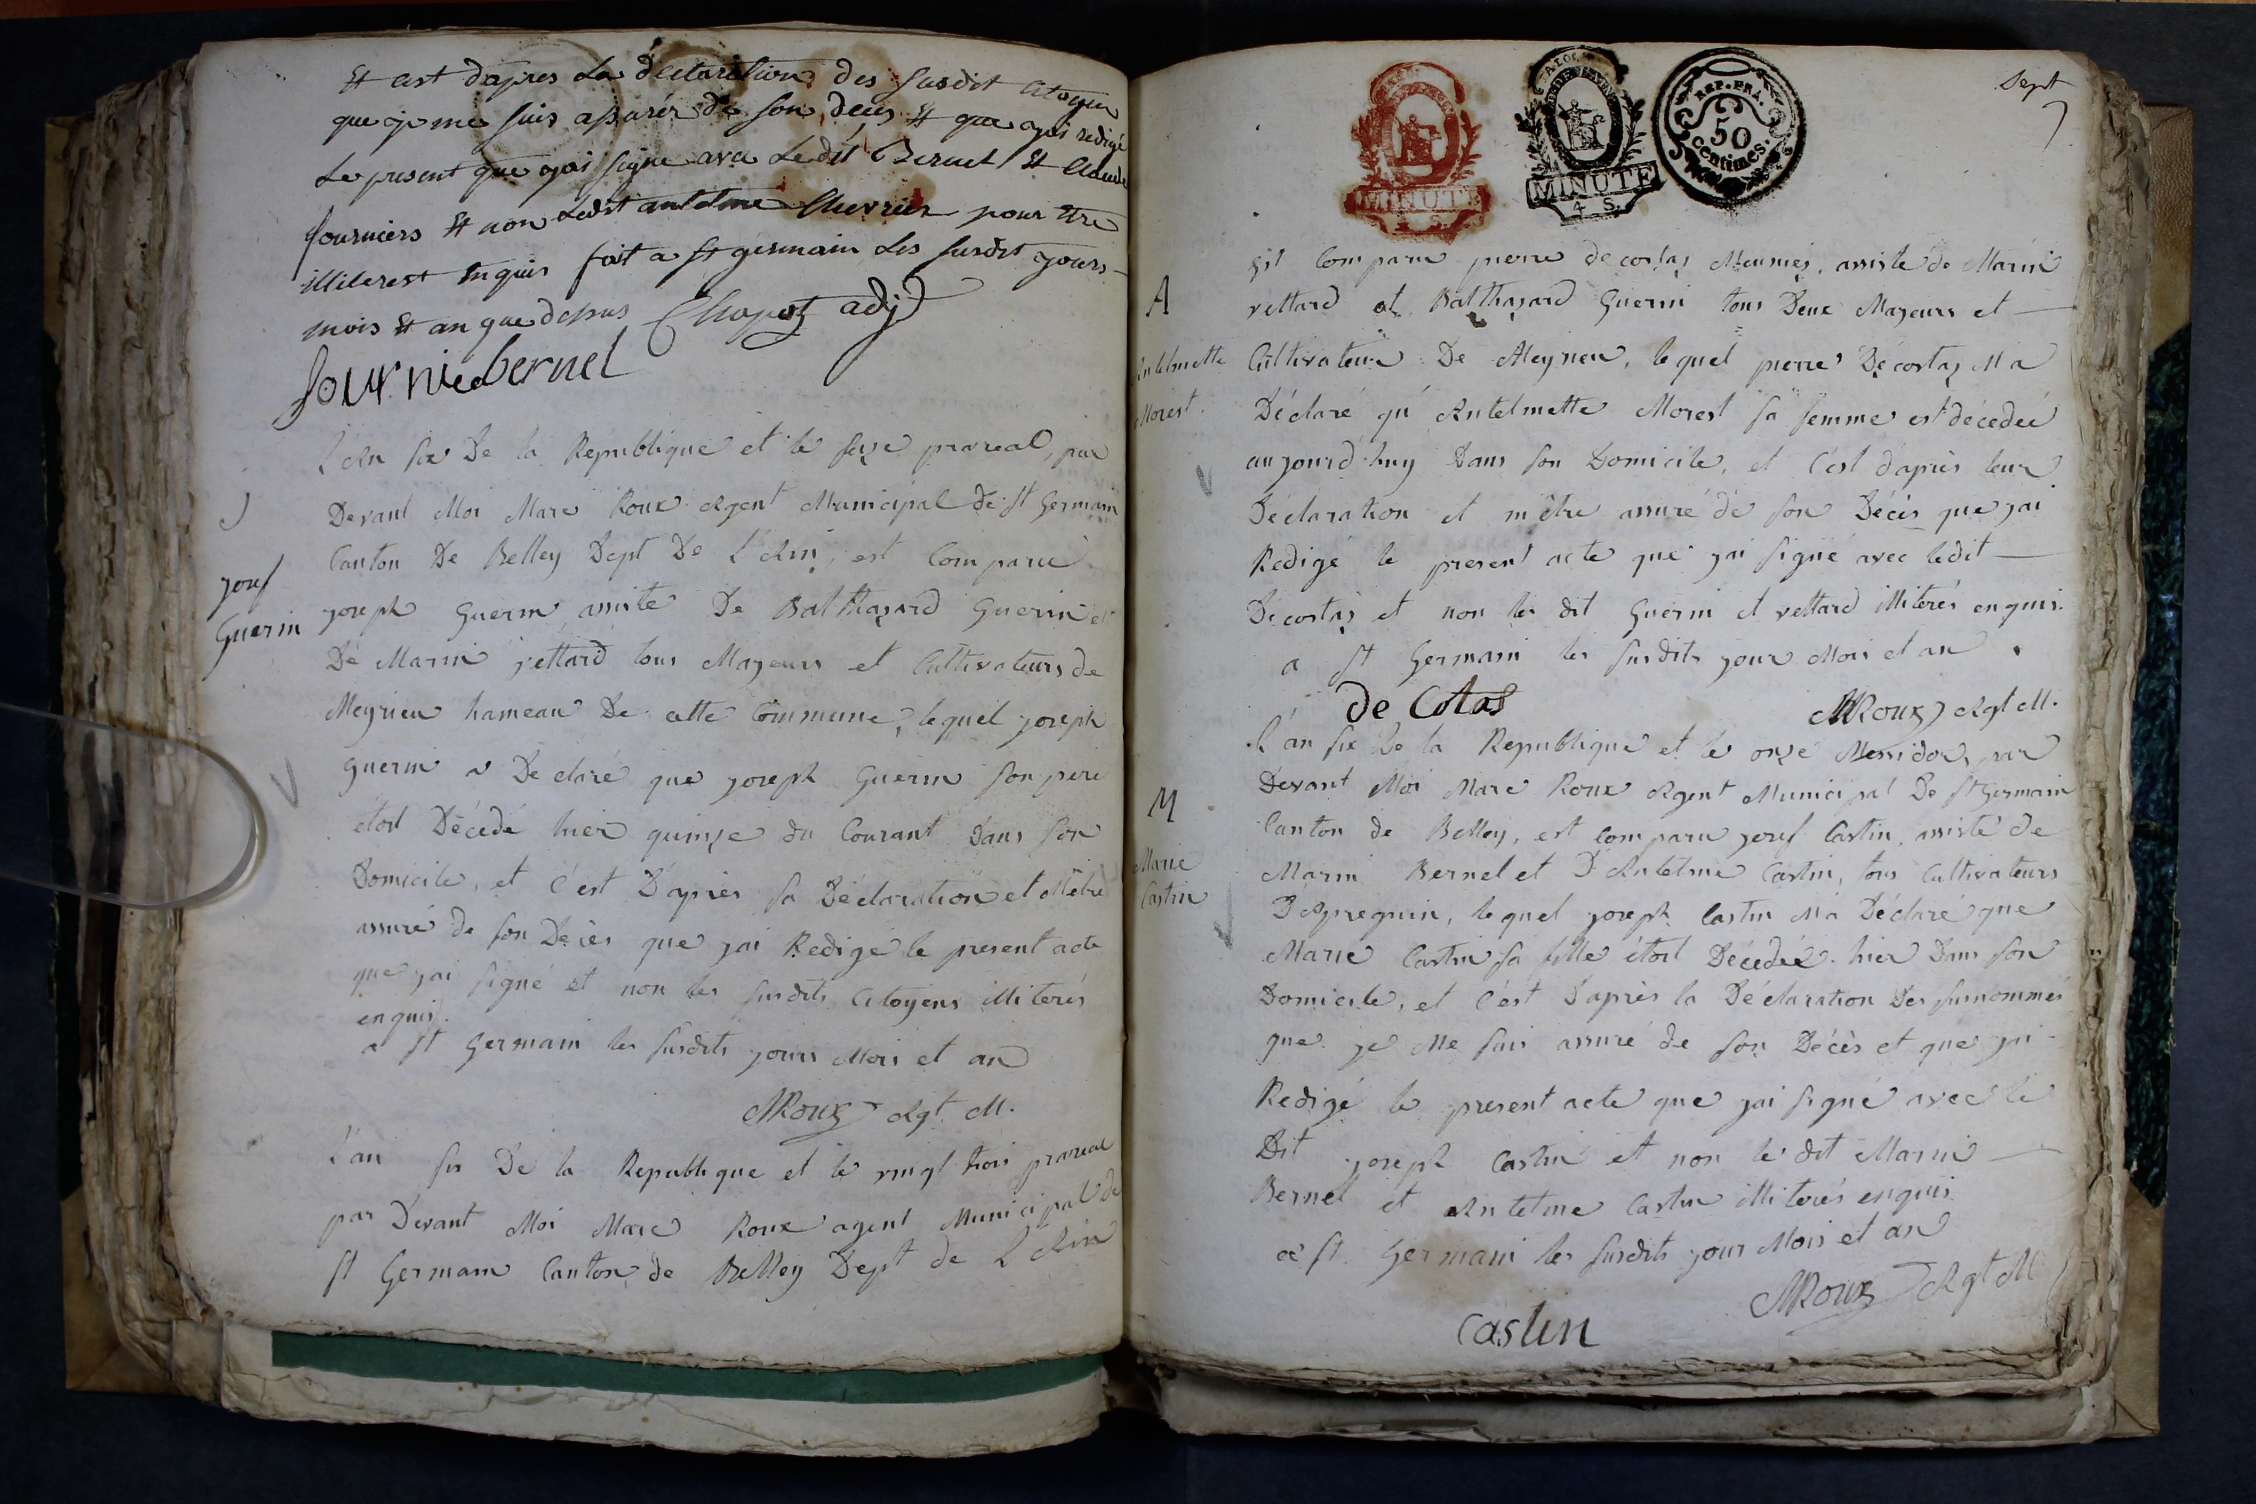 Et cest dapres La declaration des susdit Citoyen
que je me suis assurér de son deces Et que jai redigé
Le present que jai signe avec Ledit Bernel Et Claude
fourniers Et non Ledit antelme Chevrier pour Etre
illiterest Enquis fait a St germain Les susdit jours
mois Et an que dessus Chapot adjt
fournie bernel
L'An six De la République et le seize prareal, par
Devant Moi Marc Roux Agent Municipal de St Germain
Canton De Belley Dept De L'Ain, est Comparue
J
josef
Guerin
joseph Guerin, assisté De Balthazard Guerin et
De Marin vettard tous Majeurs et Cultivateurs de
Meyrieu hameau De cette Commune, lequel joseph
guerin a Déclaré que joseph Guerin son pere
étoit Décédé hier quinze du Courant Dans son
Domicile, et C'est D'après sa Déclaration et M'être
assuré de son Décès que jai Redigé le present acte
que jai signé et non les susdits Citoyens illiterés
enquis.
a St Germain les susdits jours Mois et an
MRoux Agt. M.
L'an six De la Republique et le vingt trois prareal
par Devant Moi Marc Roux agent Municipal de
St Germain Canton de Belley Dept de L'Ain
MINUTE
4 S.
MINUTE
4 S.
REP. FRA.
50
Centimes.
Sept
7
A
Antelmette
Morest.
est Comparu pierre decostas Meunies, assisté de Marin
vettard et Balthazard Guerin tous Deux Majeurs et
Cultivateurs De Meyrieu, lequel pierre Décostas M'a
Déclaré qu'Antelmette Morest sa femme est décedeé
aujourd'huy Dans son Domicile, et C'est d'après leur
Déclaration et m'être assuré de son Décès que jai
Redigé le present acte que jai signé avec ledit
Decostas et non les dit Guerin et vettard illiterés enquis.
a St Germain les susdits jour Mois et an
de Cotas MRoux Agt M.
L'an six De la Republique et le onze Messidor, par
Devant Moi Marc Roux Agent Municipal De St Germain
M
Marie
Castin
Canton de Belley, est Comparu josef Castin, assisté de
Marin Bernel et D'Antelme Castin, tous Cultivateurs
, lequel joseph Castin M'a Déclaré que
Marie Castin sa fille étoit Décedée hier Dans son
Domicile, et C'est D'après la Déclaration Des surnommés
que je Me suis assuré de son Décès et que jai
Redigé le present acte que jai signé avec le
Dit joseph Castin et non le dit Marin
Bernel et Antelme Castin illiterés enquis
a St. Germain les susdits jour Mois et an
MRoux Agt M
Castin